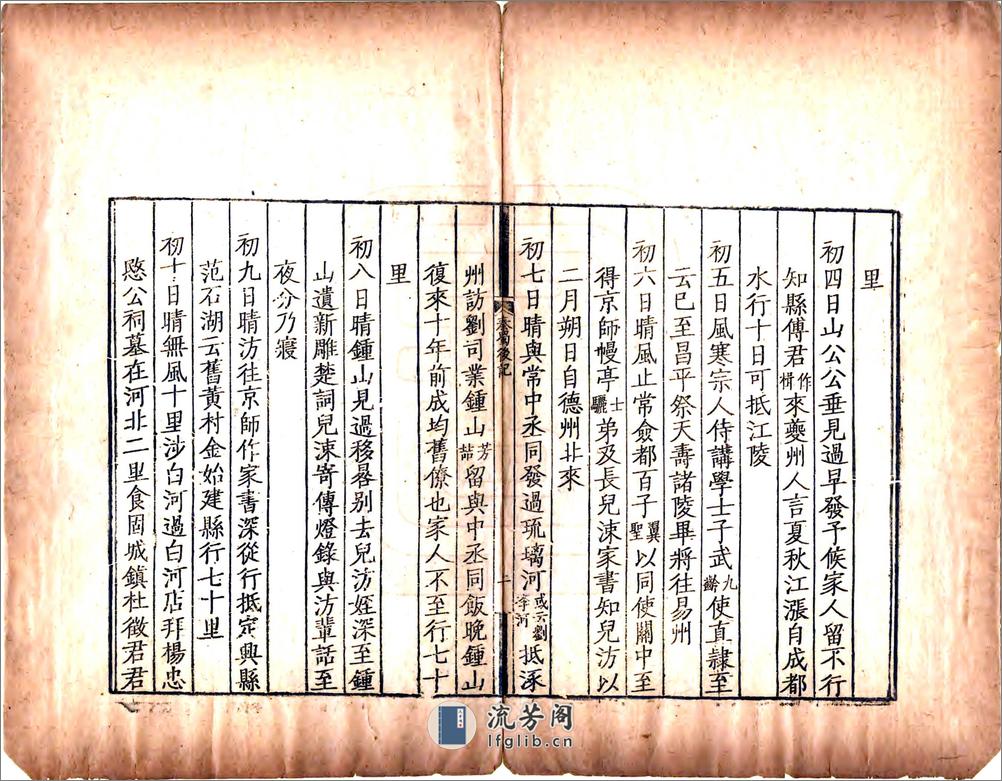 里
初四日山公公垂見過早發予候家人留不行
知縣傅君作楫來夔州人言夏秋江漲自成都
水行十日可抵江陵
初五日風寒宗人侍講學士子武九使直隷至
云已至昌平祭天壽諸陵畢將往易州
初六日晴風止常僉都百子翼聖以同使關中至
得京師幔亭士驪弟及長兒涑家書知兒汸以
二月朔日自德州北來
初七日晴與常中丞同發過琉璃河或云劉李河抵涿
秦蜀後記
二
州訪劉司業鍾山芳喆留與中丞同飯晚鍾山
復來十年前成均舊僚也家人不至行七十
里
初八日晴鍾山見過移晷别去兒汸姪深至鍾
山遺新雕楚詞兒涑寄傳燈錄與汸輩話至
夜分乃寢
初九日晴汸往京師作家書深從行抵定興縣
范石湖云舊黃村金始建縣行七十里
初十日晴無風十里涉白河過白河店拜楊忠
愍公祠墓在河北二里食固城鎮杜徵君君
流芳阁
lfglib.cn